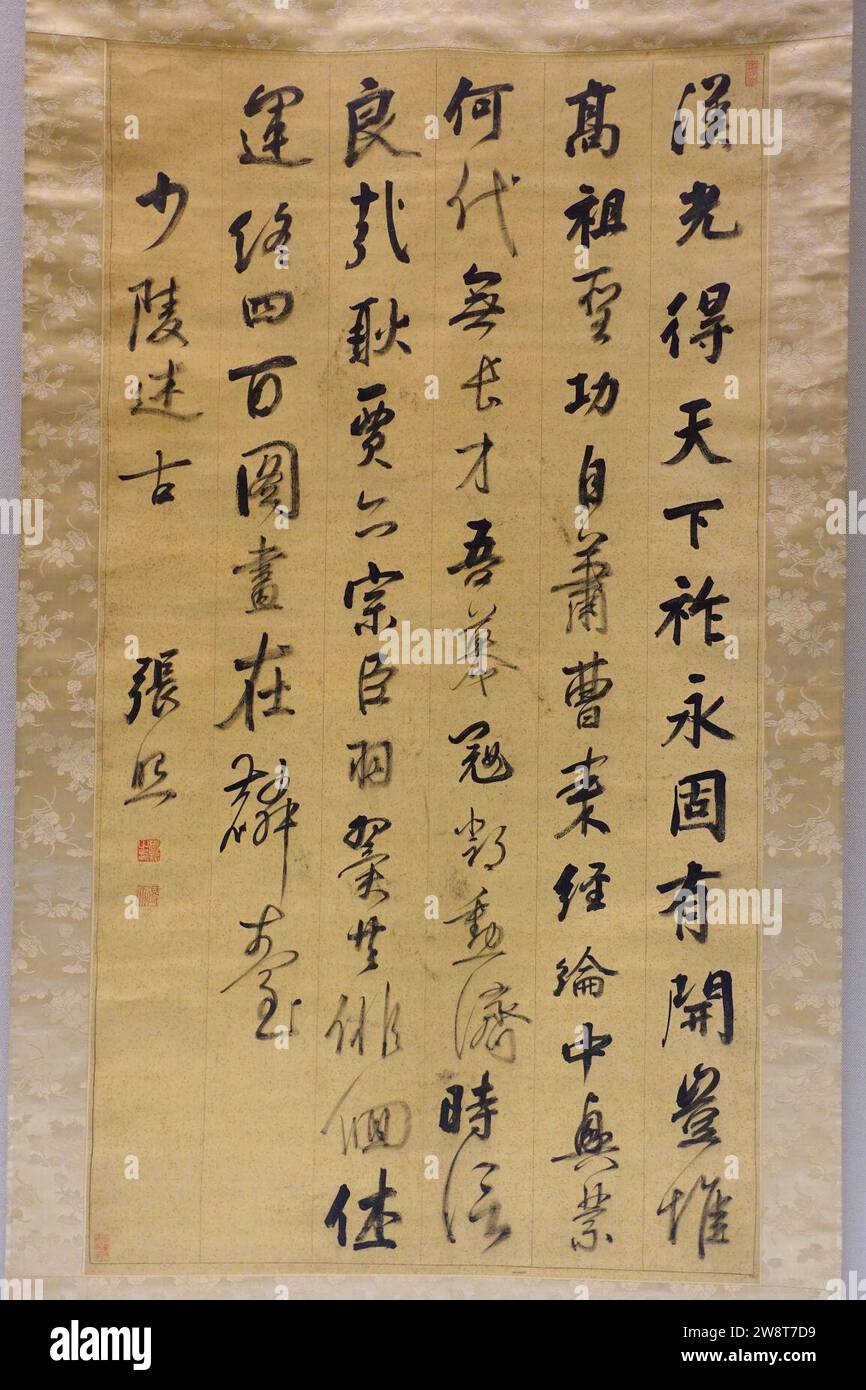 漢光得天下祚永固有開豈惟
高祖聖功自蕭曹來經綸中興業
何代無長才吾慕寇鄧勳濟時信
良哉耿賈亦宗臣羽翼共徘徊休
運終四百圖畫在麟臺
少陵述古 張照
alamy
Image ID: 2W8T7D9
www.alamy.com